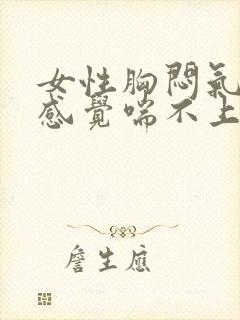 女性胸悶氣
感覺喘不上
詹生應